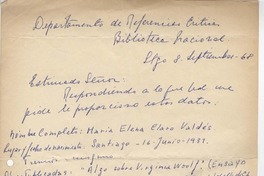 Departamento de Referencias Críticas
Biblioteca Nacional
Stgo 8 Septiembre - 68
Estimado Señor:
Respondiendo a lo que Ud. me
pide le proporciono estos datos.
Nombre Completo: María Elena Claro Valdés.
Lugar y fecha de nacimiento. Santiago - 16 - Junio - 1931.
"Algo sobre Virginia Woolf" (Ensayo